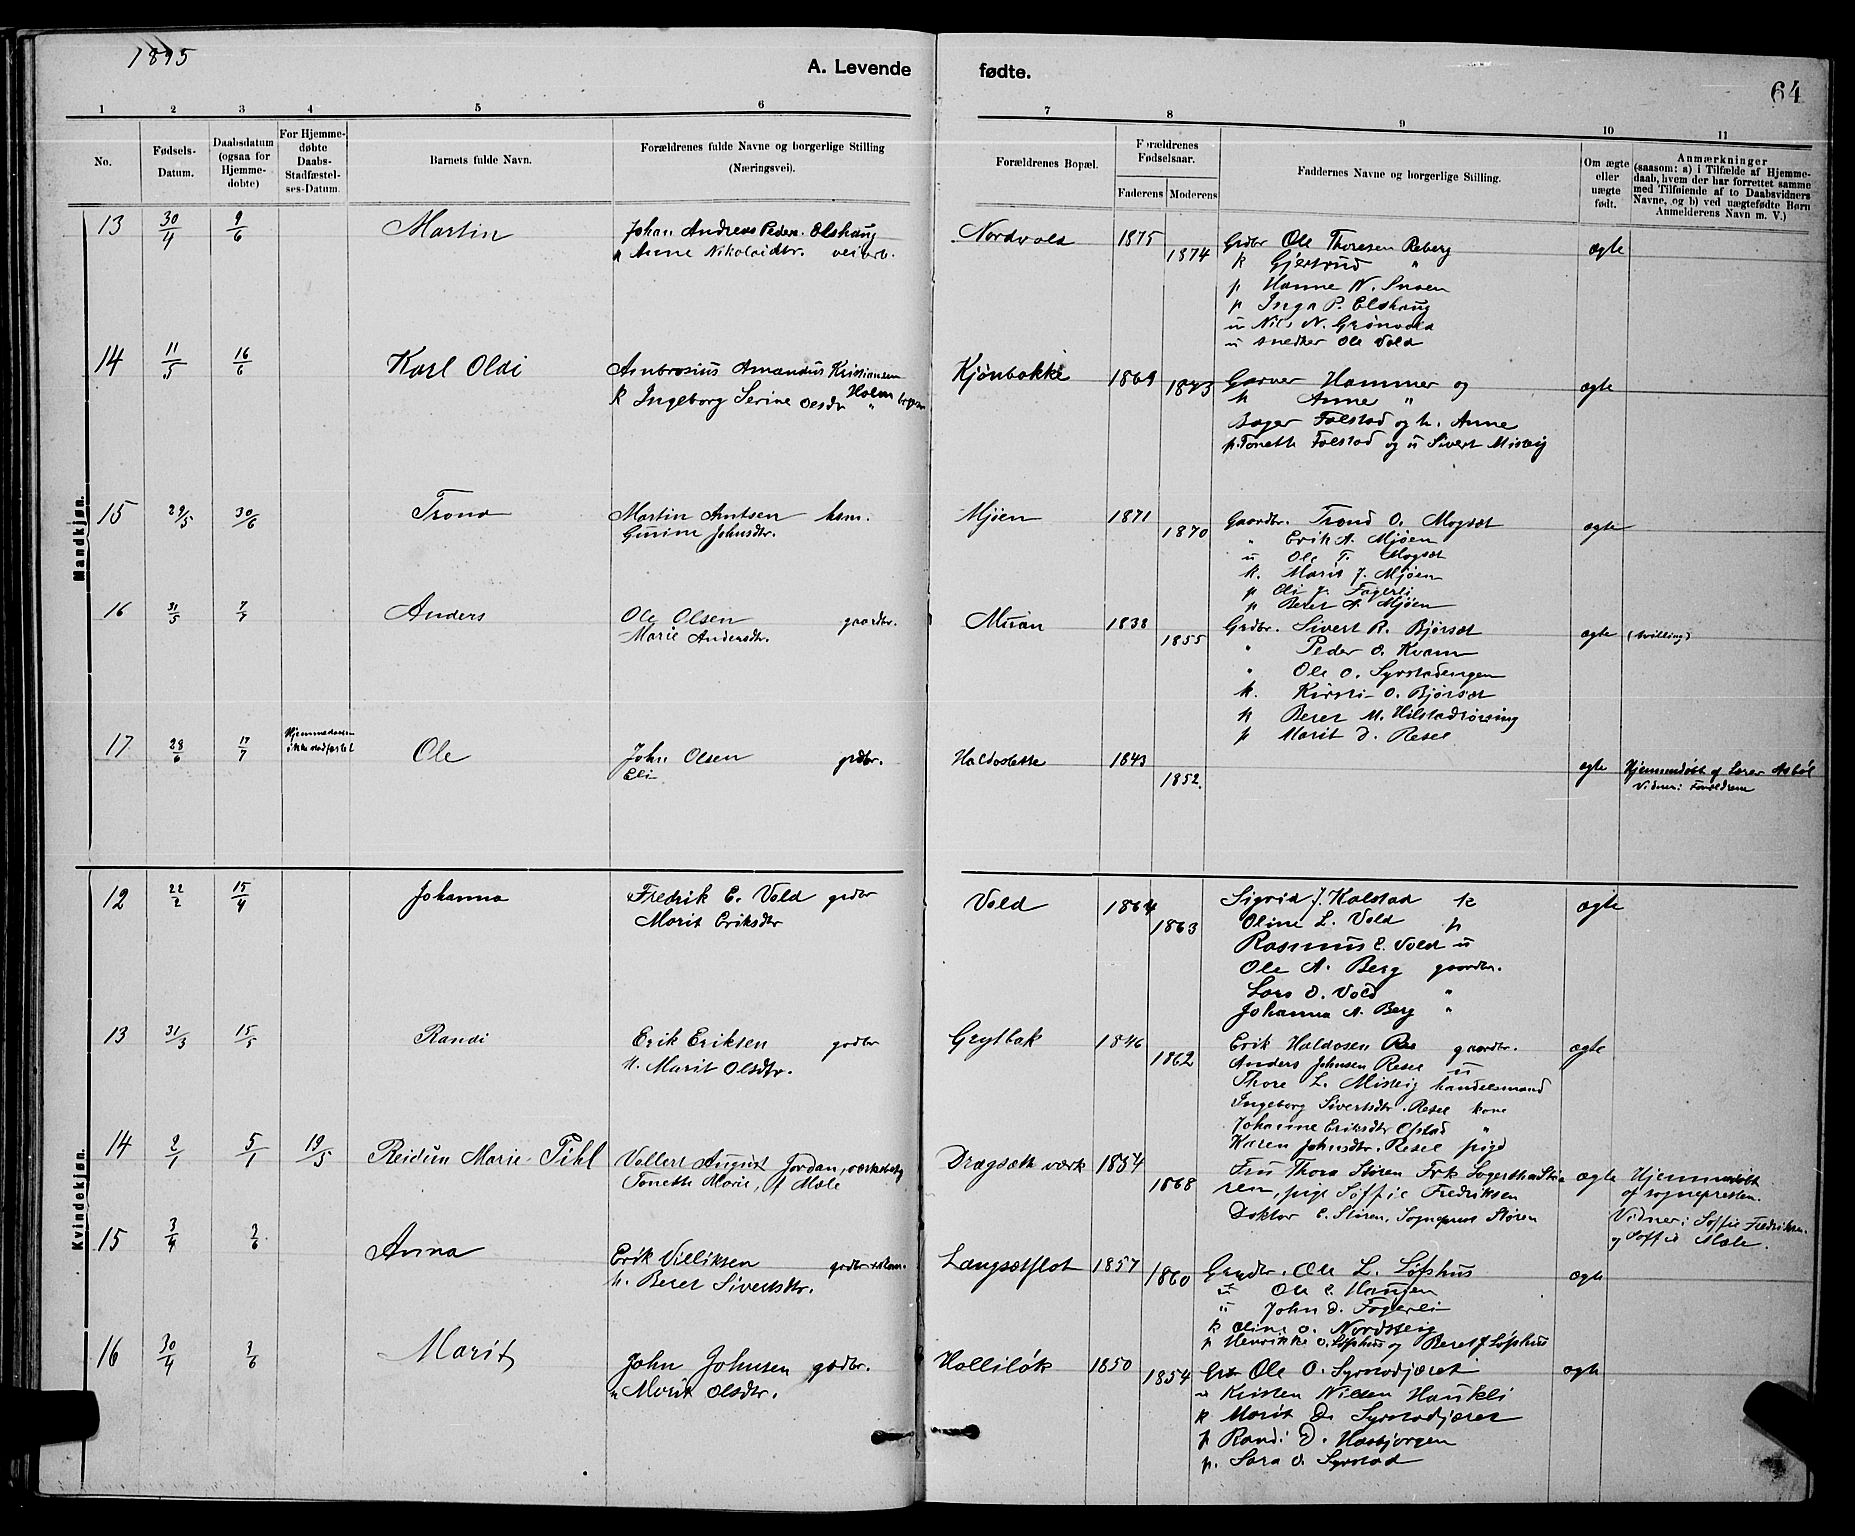 1895
A. Levende fødte.
64
1 2 3 4 5 6 7 8 9 10 11
No.
Fødsels-Datum.
Daabsdatum (ogsaa for Hjemme-døbte)
For Hjemme-døbte Daabs-Stadfæstel-ses-Datum.
Barnets fulde Navn.
Forældrenes fulde Navne og borgerlige Stilling
(Næringsvei).
Forældrenes Bopæl.
Forældrenes Fødselsaar.
Faderens Moderens
Faddernes Navne og borgerlige Stilling.
Om ægte eller uægte født.
Anmærkninger
(saasom: a) i Tilfælde af Hjemme-
daab, hvem der har forrettet samme
med Tilføiende af to Daabsvidners
Navne, og b) ved uægtefødte Børn
Anmelderens Navn m. V.)
Mandkjøn.
13 30/4 9/6 Martin
Johan Andreas Peders. Elshaug
Anne Nikolaidtr. veiarb.
Nordvold 1875 1874
Grdbr Ole Thoresen Reberg
k Gjertrud "
p Hanne N. Snoen
p Inga P. Elshaug
u Nils N. Grønvold
u snedker Ole Vold
ægte
14 11/5 16/6 Karl Oldi
Ambrosius Amandus Kristiansen
k Ingeborg Serine Olsdr Holm
Kjønbakke 1869 1873
Garver Hammer og
k Anne "
Bager Folstad og h. Anne
p. Tonette Folstad og u Sivert Misteig
ægte
15 29/5 30/6 Trond
Martin Arntsen husm.
Gurine Johnsdtr.
Mjøen 1871 1870
Gaardbr. Trond O. Mogset
" Erik A. Mjøen
u Ole T. Mogset
k. Marit J. Mjøen
p Eli J. Fagerli
p Beret A. Mjøen
ægte
16 31/5 7/7 Anders
Ole Olsen gaardbr.
Marie Andersdtr.
Muan 1838 1855
Grdbr. Sivert R. Bjørset
" Peder O. Kvam
" Ole O. Syrstadengen
k. Kirsti O. Bjørset
k Beret M. Hilstadrøsing
p Marit O. Resel
ægte (tvilling)
17 28/6 17/7 Hjemmedaaben ikke stadfæstet
Ole
John Olsen grdbr.
Eli
Haldoslette 1843 1852.
ægte Hjemmedøbt af Lærer Asbøl
Vidner: Forældrene
Kvindekjøn.
12 22/2 15/4 Johanna
Fredrik E. Vold grdbr
Marit Eriksdtr
Vold 1864 1863
Sigrid J. Halstad k
Oline L. Vold p
Rasmus E. Vold u
Ole A. Berg gaardbr.
Lars O. Vold "
Johanna A. Berg "
ægte
13 31/3 15/5 Randi
Erik Eriksen grdbr
h. Marit Olsdtr.
Grytbak 1846 1862
Erik Haldosen Ree gaardbr.
Anders Johnsen Resel u
Thore L. Misteig handelsmand
Ingeborg Sivertsdtr. Resel kone
Johanne Eriksdtr Ofstad "
Karen Johnsdtr. Resel pige
ægte
14 2/1 5/1 19/5 Reidun Marie Pihl
Vollert August Jordan, værksbest.
Tonette Marie, f Mæle
Dragsæth værk 1854 1868
Fru Thora Støren Frk Sogertha Stø
ren, pige Soffie Fredriksen
Doktor E. Støren, Sogneprest Støren
ægte Hjemmedøbt
af sognepresten.
Vidner: Soffie Fredriksen
og Soffie Mæle.
15 3/4 3/6 Anna
Erik Villiksen grdbr
h. Beret Sivertsdtr.
Langsætflot 1857 1860
Grdbr. Ole L. Løfshus
u Ole E Haugen
u John O. Fagerli
k Oline O. Nordsteig
p Henrikke O. Løfshus og Beret J Løfshus
ægte
16 30/4 3/6 Marit
John Johnsen grdbr.
" Marit Olsdtr.
Halliløk 1850 1854
Grdbr Ole O. Syrstadjæret
u Kristen Nielsen Haukli
k Marit O. Syrstadjæret
p Randi O. Hasbjørgen
p. Sara O. Syrstad
ægte